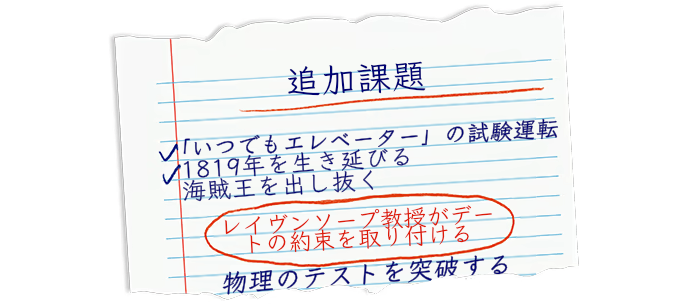 追加課題
✓「いつでもエレベーター」の試験運転
✓1819年を生き延びる
海賊王を出し抜く
レイヴンソープ教授がデー
トの約束を取り付ける
物理のテストを突破する